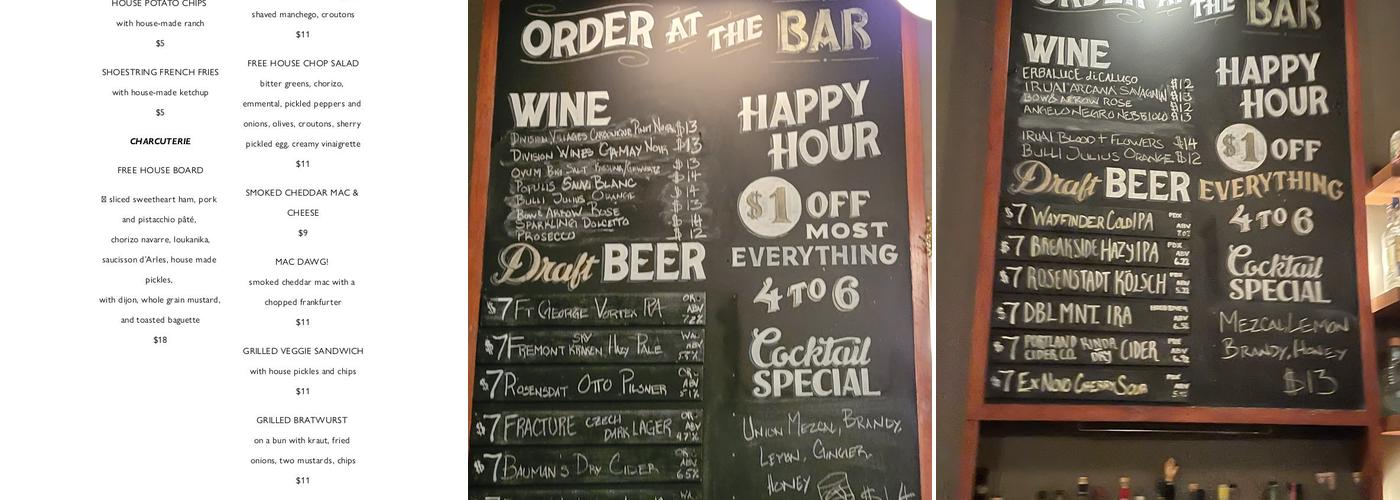 HOUSE POTATO CHIPS
with house-made ranch
$5
SHOESTRING FRENCH FRIES
with house-made ketchup
$5
CHARCUTERIE
FREE HOUSE BOARD
sliced sweetheart ham, pork
and pistacchio pâté,
chorizo navarre, loukanika,
saucisson d'Arles, house made
pickles,
with dijon, whole grain mustard,
and toasted baguette
$18
shaved manchego, croutons
$11
FREE HOUSE CHOP SALAD
bitter greens, chorizo,
emmental, pickled peppers and
onions, olives, croutons, sherry
pickled egg, creamy vinaigrette
$11
SMOKED CHEDDAR MAC &
CHEESE
$9
MAC DAWG!
smoked cheddar mac with a
chopped frankfurter
$11
GRILLED VEGGIE SANDWICH
with house pickles and chips
$11
GRILLED BRATWURST
on a bun with kraut, fried
onions, two mustards, chips
$11
ORDER AT THE BAR
WINE
DIVISION VILLAGES CARBONIQUE PINOT NOIR $13
DIVISION WINES GAMAY NOIR $13
OVUM BIG SALT $13
POPULIS SAUV BLANC $14
BULLI JULIUS ORANGE $14
BOW & ARROW ROSE $13
SPARKLING DOLCETTO $14
PROSECCO $12
Draft BEER
$7 FT GEORGE VORTEX IPA OR. ABV 7.2%
$7 FREMONT SKY KRAKEN HAZY PALE WA. ABV 5.5%
$7 ROSENSDAT OTTO PILSNER OR. ABV 5.1%
$7 FRACTURE CZECH DARK LAGER OR. ABV 4.7%
$7 BAUMAN'S DRY CIDER OR. ABV 6.5%
WA.
HAPPY
HOUR
$1 OFF
MOST
EVERYTHING
4 TO 6
Cocktail
SPECIAL
UNION MEZCAL, BRANDY,
LEMON, GINGER,
HONEY $14
ORDER AT THE BAR
WINE
ERBALUCE di CALUSO $12
IRUAI ARCANA SAVAGNIN $13
BOW & ARROW ROSE $12
ANGELO NEGRO NEBBIOLO $13
IRUAI BLOOD + FLOWERS $14
BULLI JULIUS ORANGE $12
Draft BEER
$7 WAYFINDER COLD IPA PDX ABV
$7 BREAKSIDE HAZY IPA PDX ABV
$7 ROSENSTADT KÖLSCH PDX ABV
$7 DBL MNT. IRA ABV
$7 PORTLAND CIDER CO. KINDA DRY CIDER ABV
$7 EX NOVO CHERRY SOUR ABV
HAPPY
HOUR
$1 OFF
EVERYTHING
4 TO 6
Cocktail
SPECIAL
MEZCAL, LEMON
BRANDY, HONEY
$13